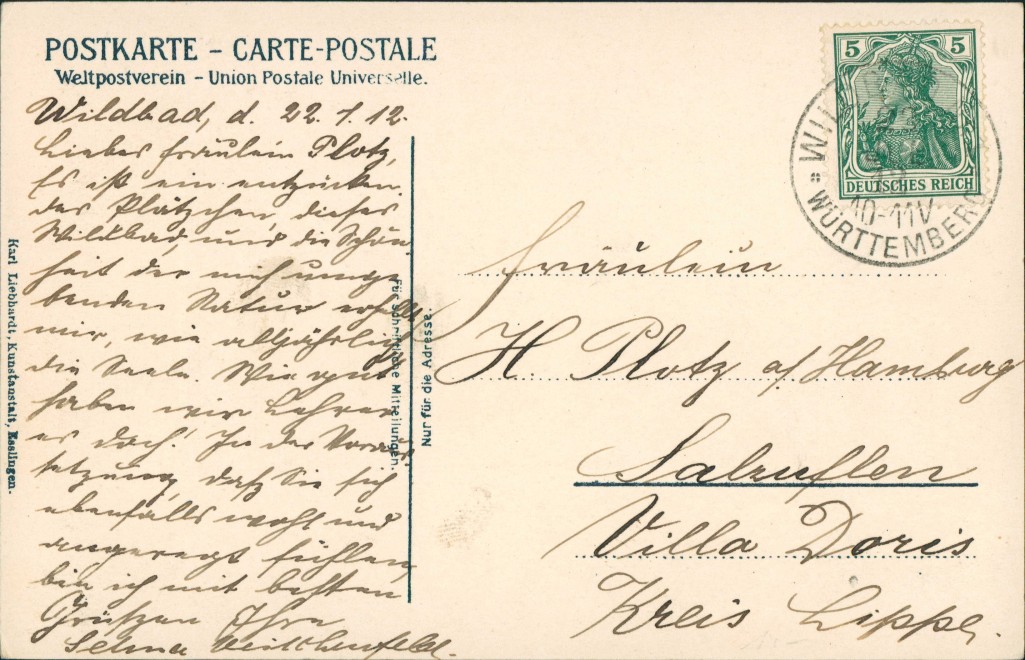 POSTKARTE – CARTE-POSTALE
Weltpostverein – Union Postale Universelle.
Wildbad, d. 22. 7. 12.
Liebes Fräulein Plotz,
Es ist ein entzücken
des Plätzchen, dieses
Wildbad, und die Schön
heit der mich umge
benden Natur erhellt
mir, wie alljährlich
die Seele. Wie gut
haben wir Lehrer
es doch! In der Voraus
setzung, daß Sie sich
ebenfalls wohl und
angeregt fühlen,
bin ich mit besten
Grüßen Ihre
Selma
Karl Liebhardt, Kunstanstalt, Esslingen.
Für schriftliche Mitteilungen.
Nur für die Adresse.
5 5
DEUTSCHES REICH
WIL
10-11V
WÜRTTEMBERG
Fräulein
H. Plotz a/ Hamburg
Salzuflen
Villa Doris
Kreis Lippe.